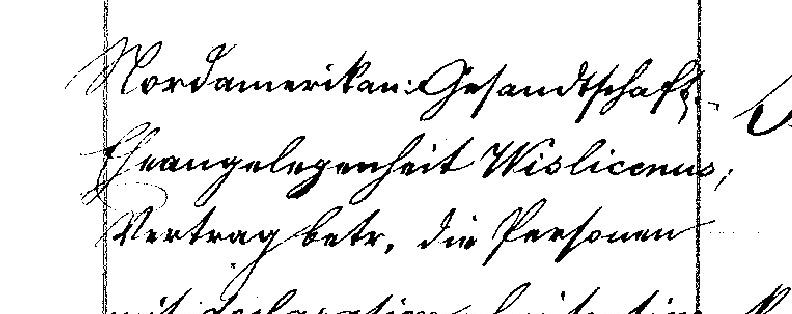 Nordamerikan: Gesandtschaft.
Eheangelegenheit Wislicenus;
Vertrag betr. die Personen
mit